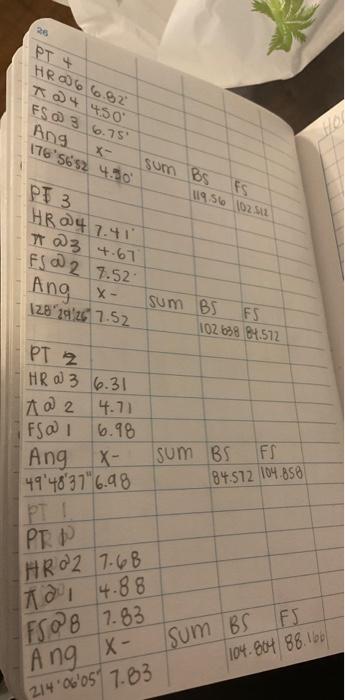 26
PT 4
HR@6 6.82'
π@4 4.50'
FS@3 6.75'
Ang X- sum BS FS
176°56'52 4.50' 119.56 102.512
PT 3
HR@4 7.41'
π@3 4.67
FS@2 7.52'
Ang X- sum BS FS
128°29'26" 7.52 102.638 84.572
PT 2
HR@3 6.31
π@2 4.71
FS@1 6.98
Ang X- sum BS FS
49°48'37" 6.98 84.572 104.858
PT 1
PT 1
HR@2 7.68
π@1 4.88
FS@8 7.83
Ang X- sum BS FS
214°06'05" 7.83 104.804 88.166